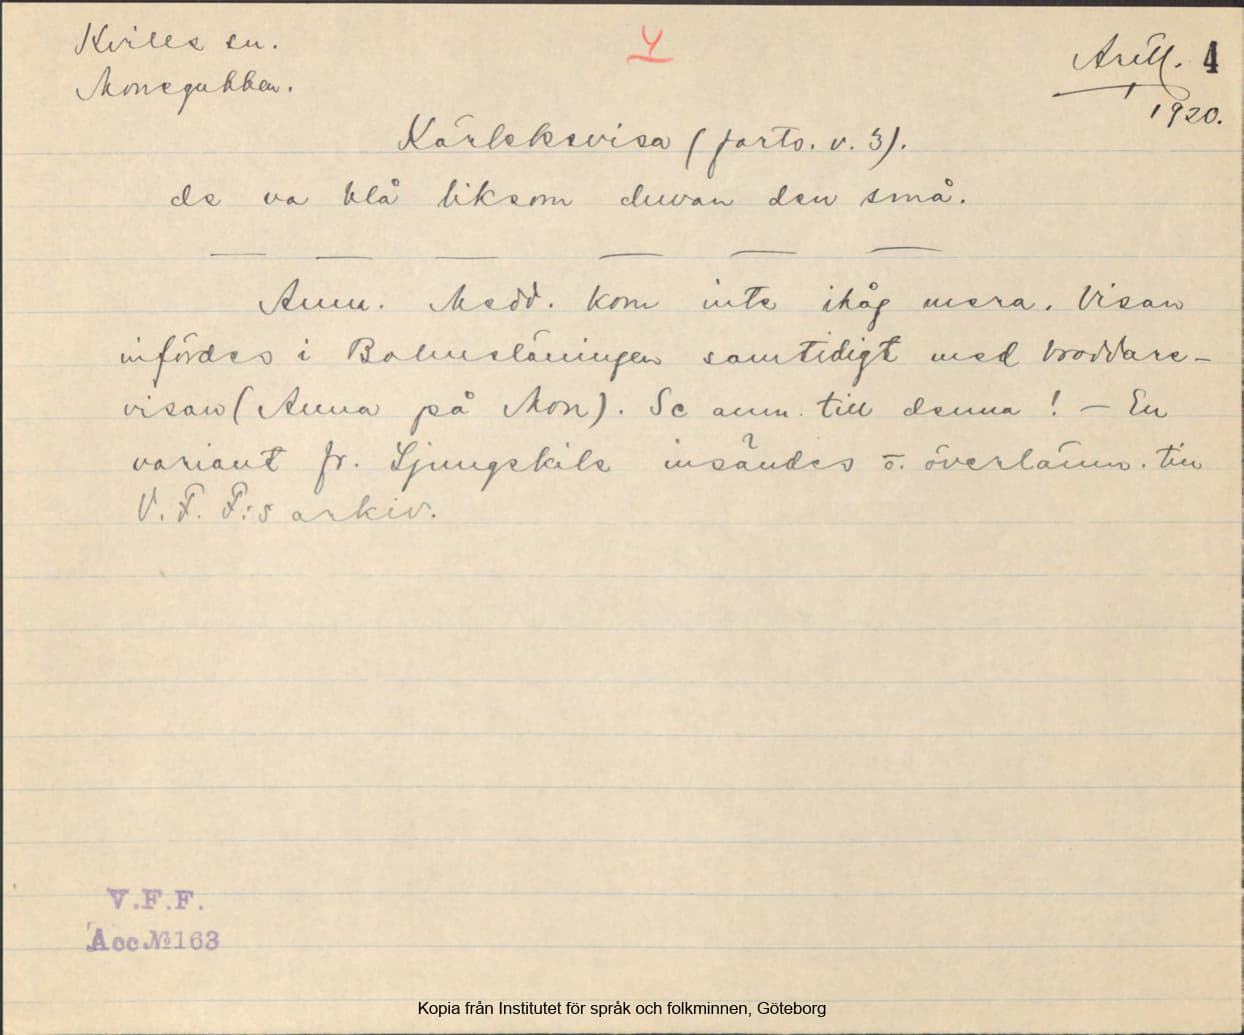 Kville sn.
Monegubben.
4
Antl. 4
1920.
Kärleksvisa (forts. v. 3).
de va blå liksom duvan den små.
— — — — — —
Anm. Medd. kom inte ihåg mera. Visan
infördes i Bohusläningen samtidigt med broddare-
visan (Anna på Mon). Se anm. till denna! — En
variant fr. Ljungskile insändes o. överlämn. till
V. F. F:s arkiv.
V.F.F.
Acc.№163
Kopia från Institutet för språk och folkminnen, Göteborg